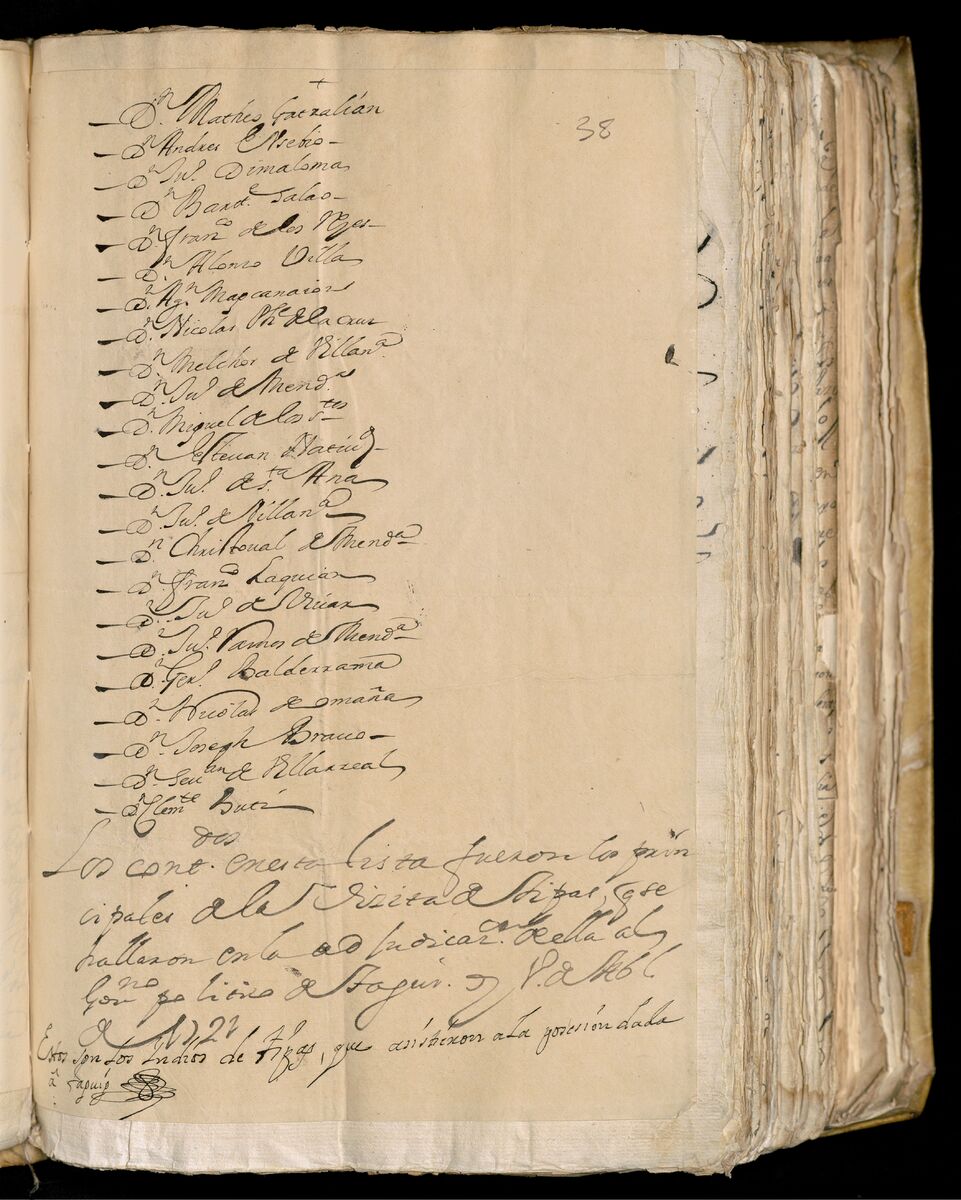 +
38
— Dn. Matheo Gatzalian
— Dn. Andres Eusebio —
— Dn. Jul. Dimaloma
— Dn. Bard.e Salao —
— Dn. Franco de los Reyes —
— Dn. Alonzo Villa
— Dn. Agn. Magcanaion
— Dn. Nicolas Phe de la cruz
— Dn. Melchor de Villana.
— Dn. Jul. de Menda
— Dn. Miguel de los Stos
— Dn. Estevan
— Dn. Jul. de Sta Ana
— Dn. Jul. de Villana
— Dn. Christoval de Menda
— Dn. Franco Laquian
— Dn. Jul. de
— Dn. Jul. Ramos de Menda
— Dn. Gerl. Balderrama
— Dn. Nicolas de omaña
— Dn. Joseph Bravo —
— Dn. Sevan de Villarreal
— Dn. Clemte
Los contdos. en esta lista fueron los prin
cipales de la Vizita de Tipas, q se
hallaron en la adjudicaon. de ella al
Govno politico de Taguig. 8. de
de 172
Estos son los Indios de tipas, que asistieron a la posesión dada
a Taguig